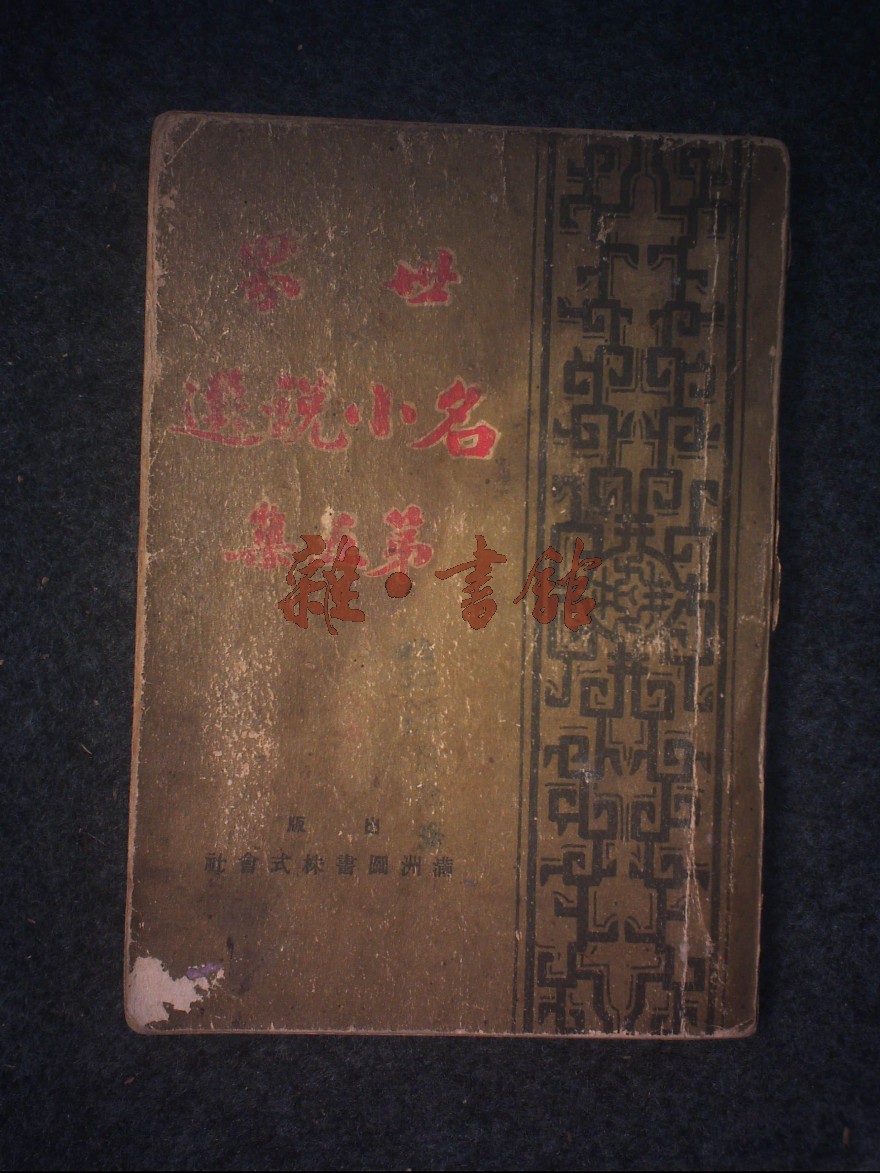 世界
名小說選
第集
雜·書館
出版
滿洲圖書株式會社